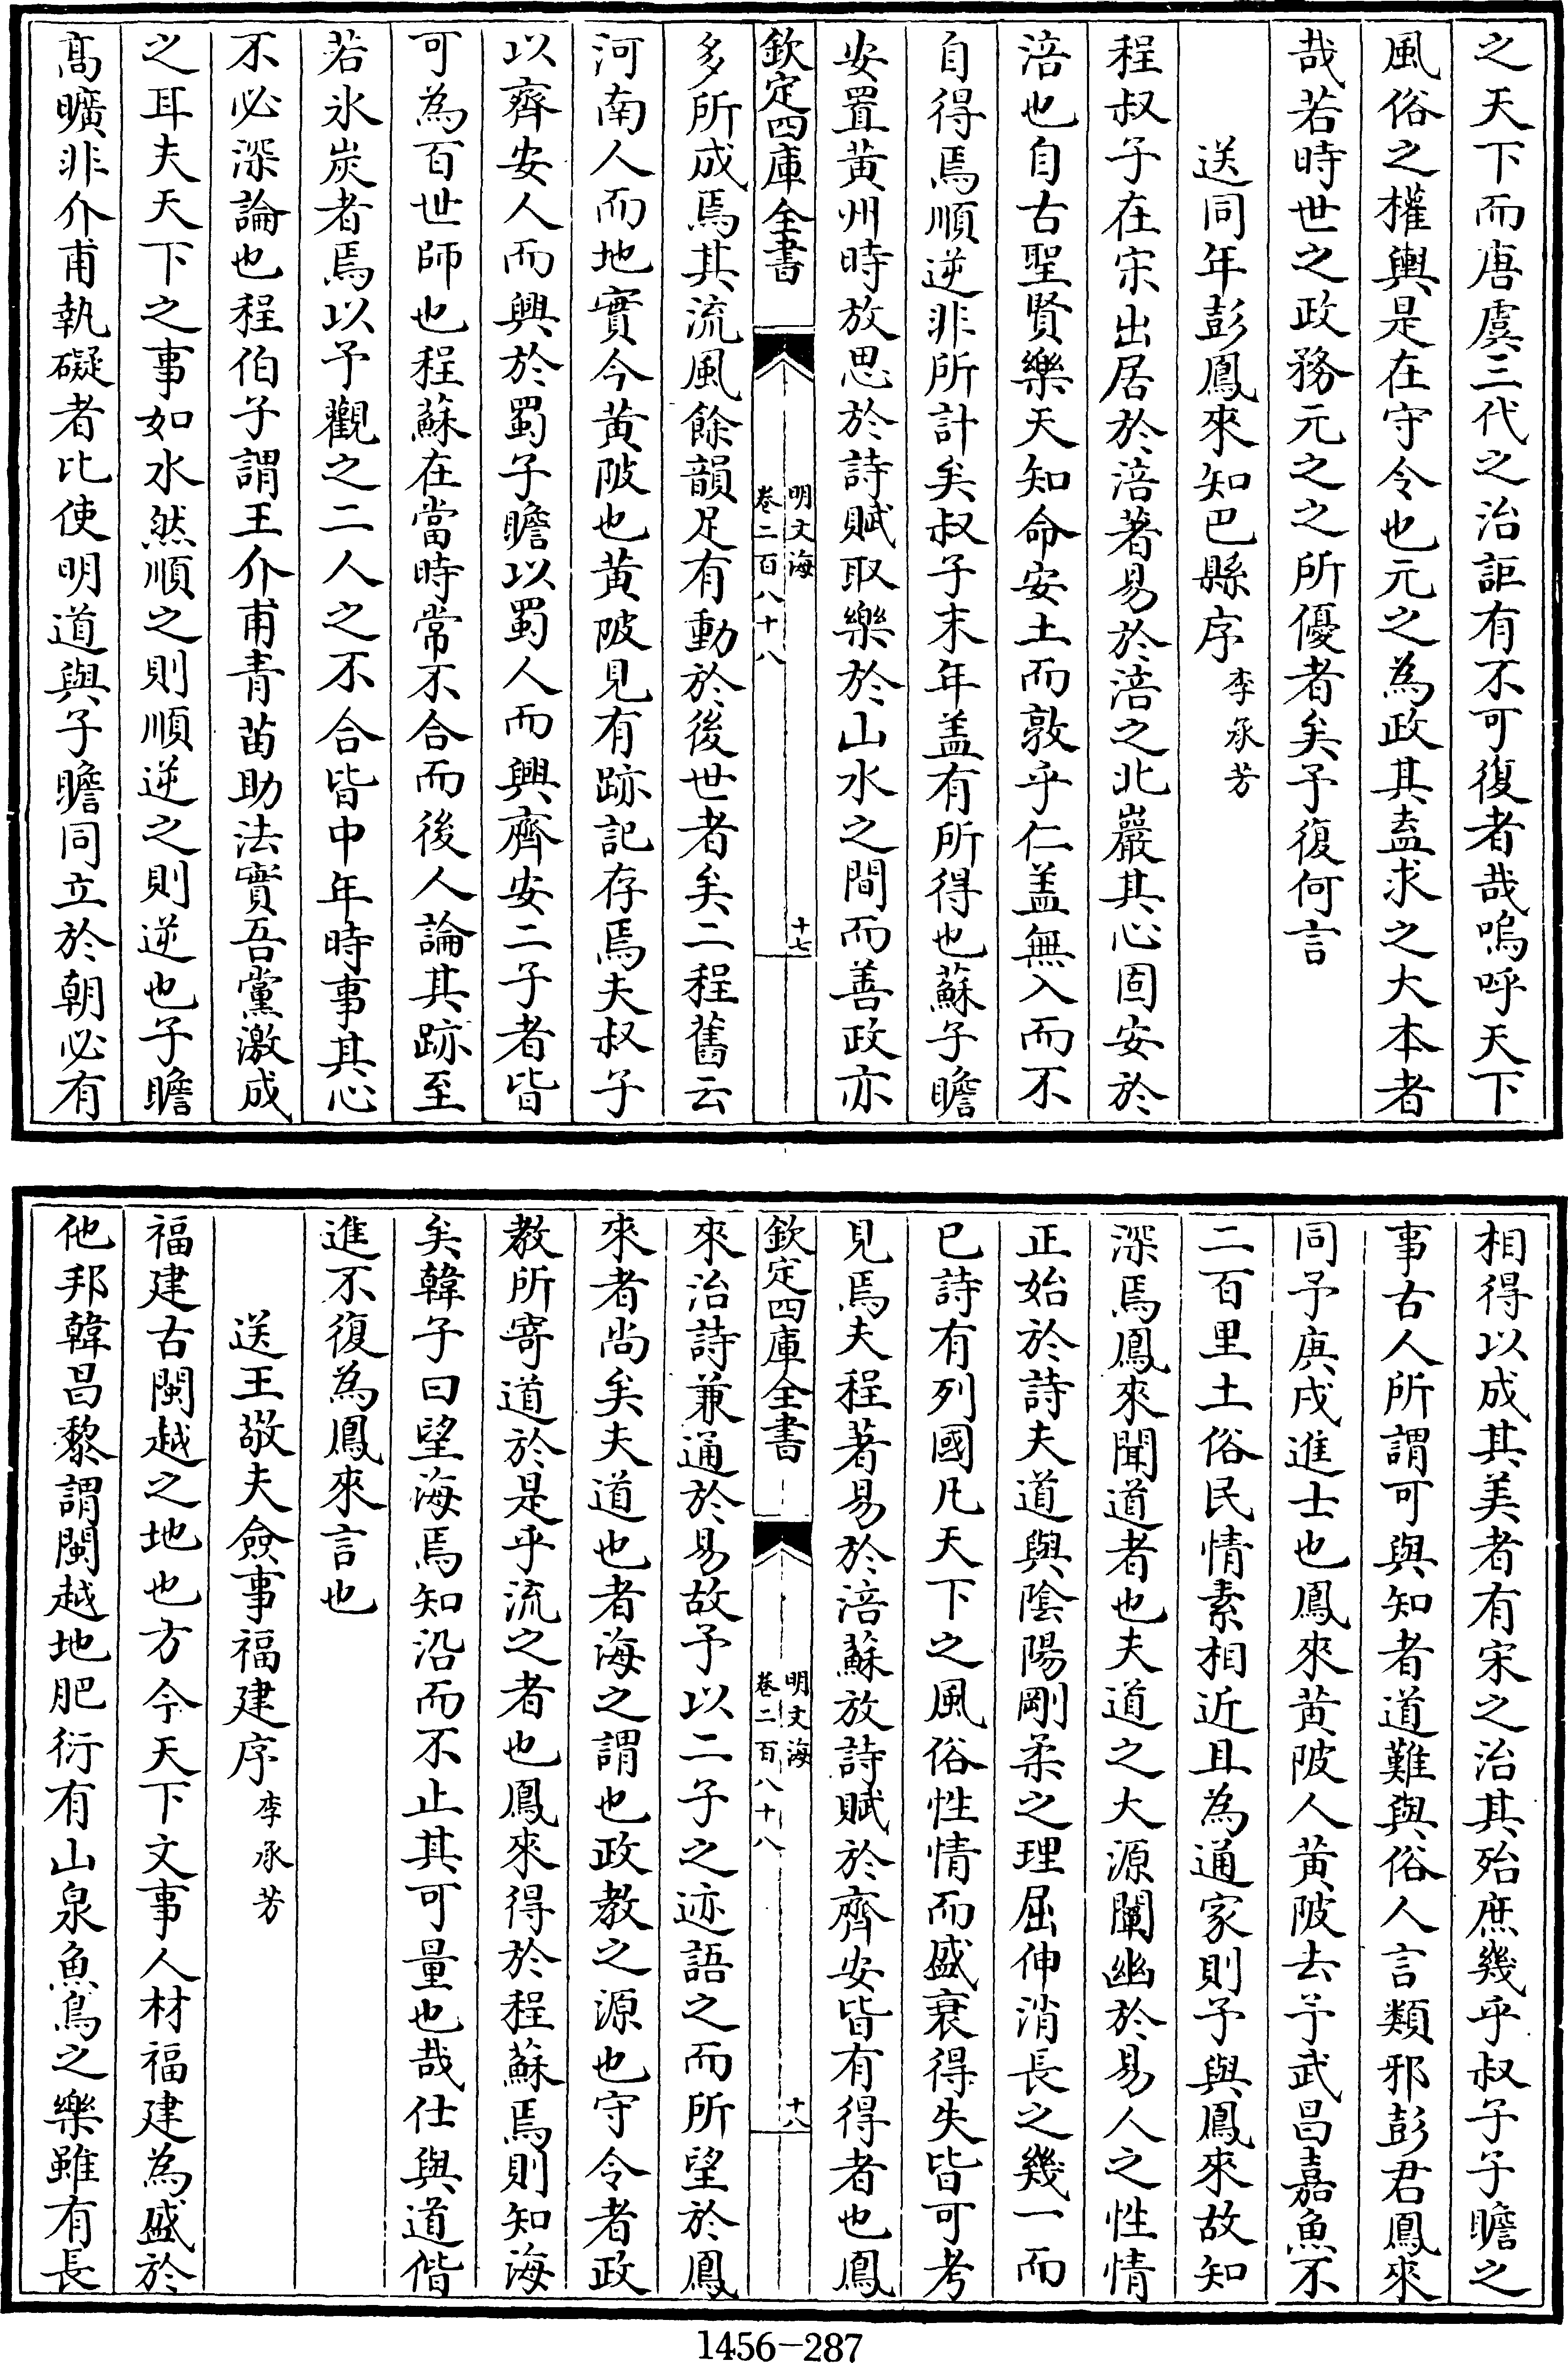 之天下而唐虞三代之治詎有不可復者哉嗚呼天下
風俗之權輿是在守令也元之為政其盍求之大本者
哉若時世之政務元之之所優者矣予復何言
送同年彭鳳來知巴縣序李承芳
程叔子在宋出居於涪著易於涪之北巖其心固安於
涪也自古聖賢樂天知命安土而敦乎仁盖無入而不
自得焉順逆非所計矣叔子末年盖有所得也蘇子瞻
安置黄州時放思於詩賦取樂於山水之間而善政亦
欽定四庫全書
明文海
卷二百八十八
十七
多所成焉其流風餘韻足有動於後世者矣二程舊云
河南人而地實今黄陂也黄陂見有跡記存焉夫叔子
以齊安人而興於蜀子瞻以蜀人而興齊安二子者皆
可為百世師也程蘇在當時常不合而後人論其跡至
若氷炭者焉以予觀之二人之不合皆中年時事其心
不必深論也程伯子謂王介甫青苗助法實吾黨激成
之耳夫天下之事如水然順之則順逆之則逆也子瞻
髙曠非介甫執礙者比使明道與子瞻同立於朝必有
相得以成其美者有宋之治其殆庶幾乎叔子子瞻之
事古人所謂可與知者道難與俗人言類邪彭君鳳來
同予庚戌進士也鳳來黄陂人黄陂去予武昌嘉魚不
二百里土俗民情素相近且為通家則予與鳳來故知
深焉鳳來聞道者也夫道之大源闡幽於易人之性情
正始於詩夫道與陰陽剛柔之理屈伸消長之幾一而
已詩有列國凡天下之風俗性情而盛衰得失皆可考
見焉夫程著易於涪蘇放詩賦於齊安皆有得者也鳳
欽定四庫全書
明文海
卷二百八十八
十八
來治詩兼通於易故予以二子之迹語之而所望於鳳
來者尚矣夫道也者海之謂也政教之源也守令者政
教所寄道於是乎流之者也鳳來得於程蘇焉則知海
矣韓子曰望海焉知沿而不止其可量也哉仕與道偕
進不復為鳳來言也
送王敬夫僉事福建序李承芳
福建古閩越之地也方今天下文事人材福建為盛於
他邦韓昌黎謂閩越地肥衍有山泉魚鳥之樂雖有長
1456-287